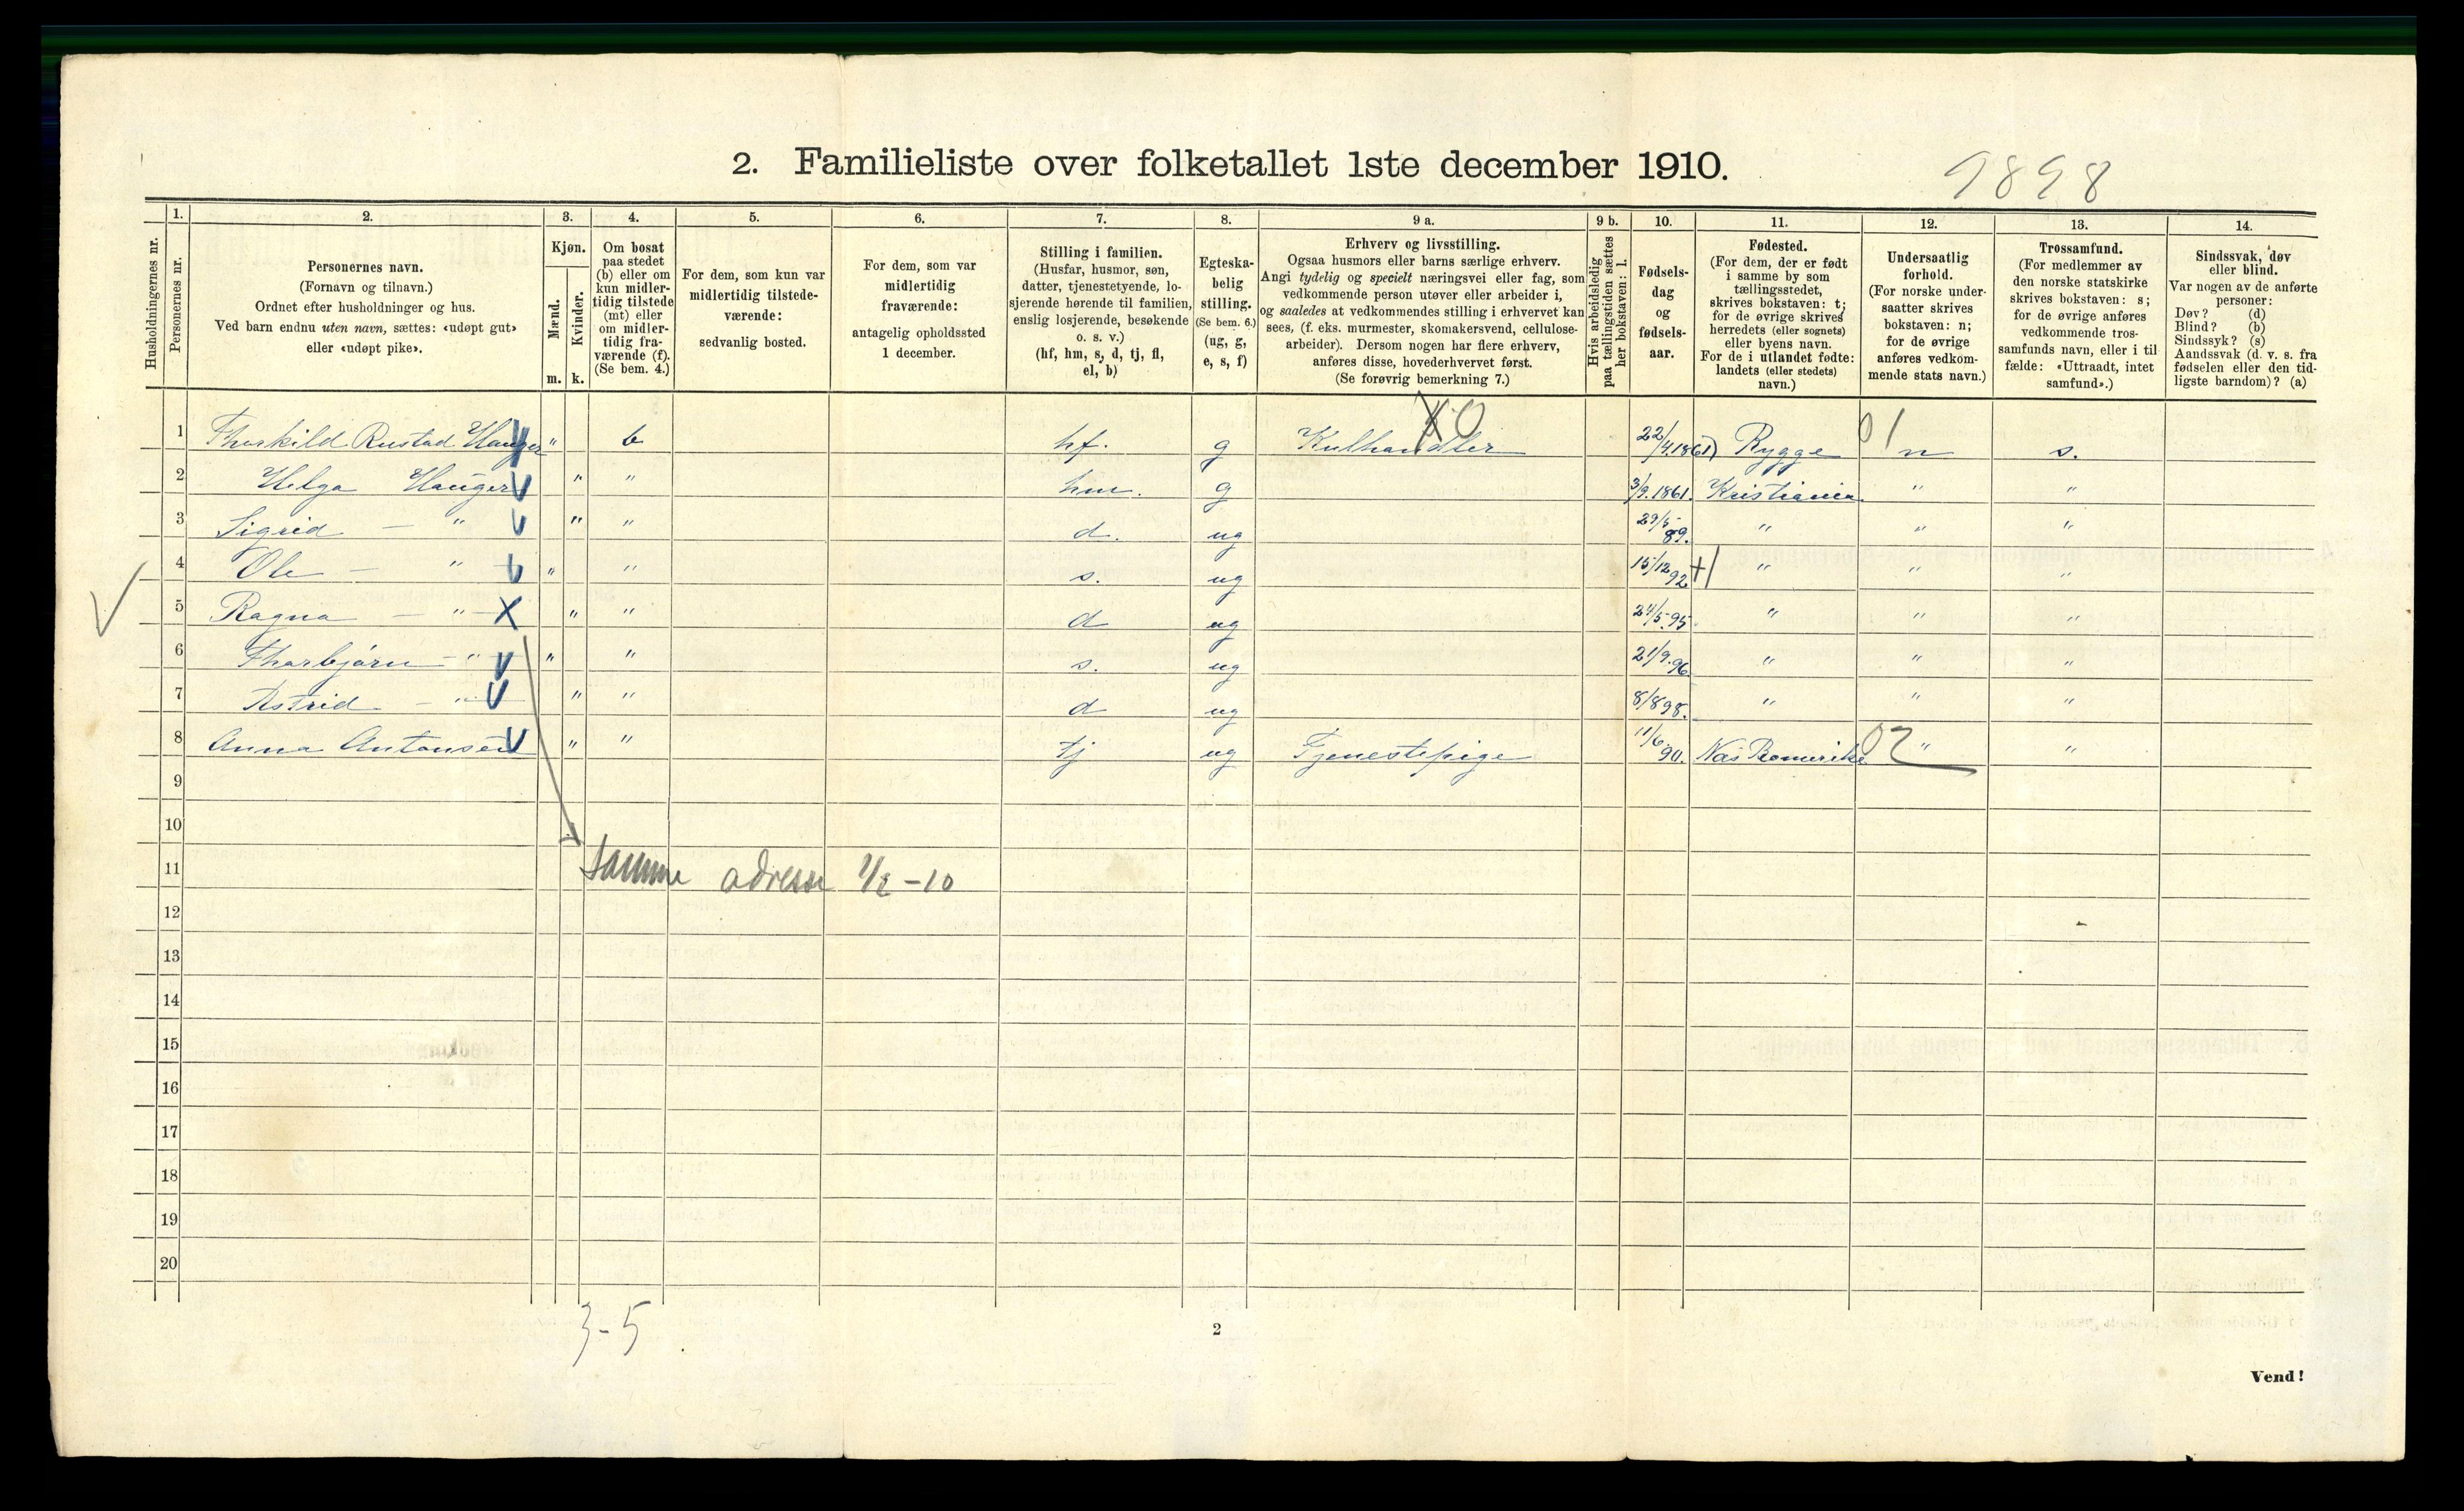 2. Familieliste over folketallet 1ste december 1910.
9898
Husholdningernes nr.
1.
Personernes nr.
2.
Personernes navn.
(Fornavn og tilnavn.)
Ordnet efter husholdninger og hus.
Ved barn endnu uten navn, sættes: «udøpt gut»
eller «udøpt pike».
3.
Kjøn.
Mænd.
Kvinder.
m. k.
4.
Om bosat
paa stedet
(b) eller om
kun midler-
tidig tilstede
(mt) eller
om midler-
tidig fra-
værende (f).
(Se bem. 4.)
5.
For dem, som kun var
midlertidig tilstede-
værende:
sedvanlig bosted.
6.
For dem, som var
midlertidig
fraværende:
antagelig opholdssted
1 december.
7.
Stilling i familien.
(Husfar, husmor, søn,
datter, tjenestetyende, lo-
sjerende hørende til familien,
enslig losjerende, besøkende
o. s. v.)
(hf, hm, s, d, tj, fl,
el, b)
8.
Egteska-
belig
stilling.
(Se bem. 6.)
(ug, g,
e, s, f)
9 a.
Erhverv og livsstilling.
Ogsaa husmors eller barns særlige erhverv.
Angi tydelig og specielt næringsvei eller fag, som
vedkommende person utøver eller arbeider i,
og saaledes at vedkommendes stilling i erhvervet kan
sees, (f. eks. murmester, skomakersvend, cellulose-
arbeider). Dersom nogen har flere erhverv,
anføres disse, hovederhvervet først.
(Se forøvrig bemerkning 7.)
9 b.
Hvis arbeidsledig
paa tællingstiden sættes
her bokstaven: l.
10.
Fødsels-
dag
og
fødsels-
aar.
11.
Fødested.
(For dem, der er født
i samme by som
tællingsstedet,
skrives bokstaven: t;
for de øvrige skrives
herredets (eller sognets)
eller byens navn.
For de i utlandet fødte:
landets (eller stedets)
navn.)
12.
Undersaatlig
forhold.
(For norske under-
saatter skrives
bokstaven: n;
for de øvrige
anføres vedkom-
mende stats navn.)
13.
Trossamfund.
(For medlemmer av
den norske statskirke
skrives bokstaven: s;
for de øvrige anføres
vedkommende tros-
samfunds navn, eller i til
fælde: «Uttraadt, intet
samfund».)
14.
Sindssvak, døv
eller blind.
Var nogen av de anførte
personer:
Døv? (d)
Blind? (b)
Sindssyk? (s)
Aandssvak (d. v. s. fra
fødselen eller den tid-
ligste barndom)? (a)
1 Thorkild Rustad Hauger " b hf. g Kulhandler 0 22/4.1861 Rygge 01 n s.
2 Helga Hauger " " hm. g 3/9.1861. Kristiania " "
3 Sigrid — " " " d. ug 29/5 89. " " "
4 Ole — " " " s. ug 15/12 92 " " "
5 Ragna — " " " d ug 24/5.95 " " "
6 Thorbjørn — " " " s. ug 21/9.96 " " "
7 Astrid — " " " d ug 8/8 98. " " "
8 Anna Antonsen " " tj ug Tjenestepige 11/6 90. Nes Romerike 02 " "
9
10
11 samme adresse 1/2 -10
12
13
14
15
16
17
18
19
20
3-5
2
Vend!